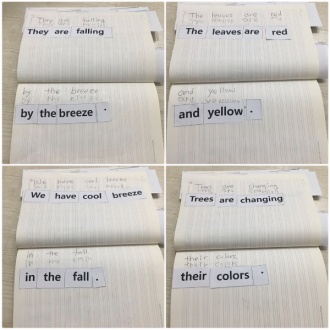 They are falling
They are falling
by the breeze
by the breeze .
The leaves are red
The leaves are red
and yellow
and yellow .
We have cool breeze
We have cool breeze
in the fall
in the fall .
Trees are changing
Trees are changing
their colors
their colors .